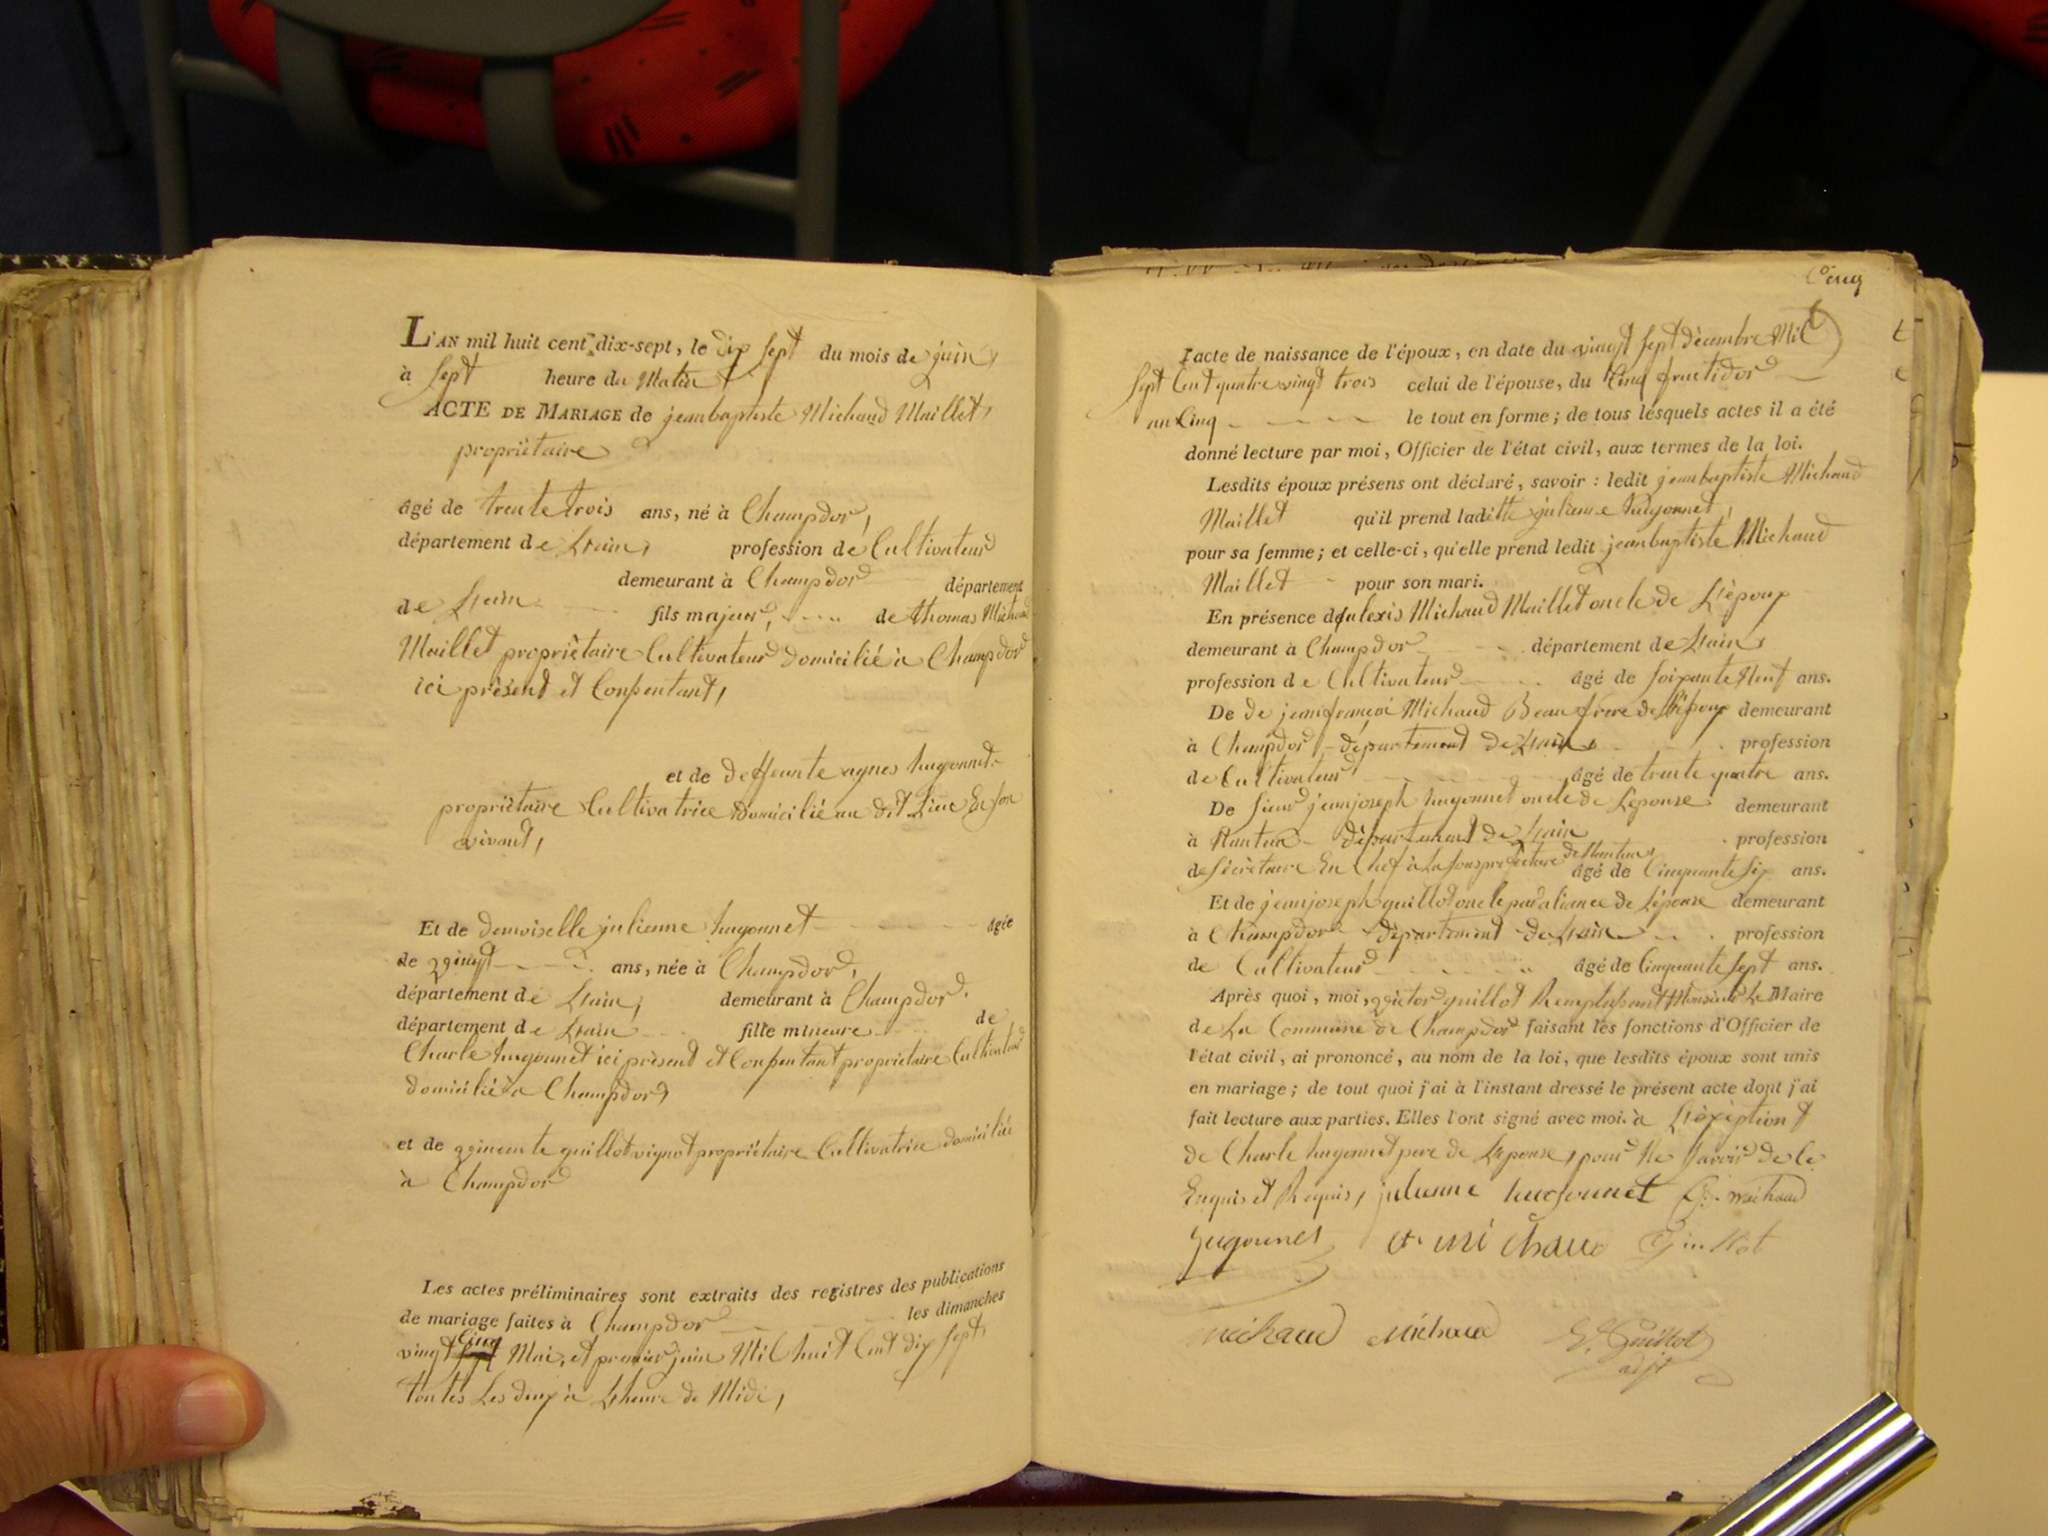 L'AN mil huit cent dix-sept, le dix sept du mois de juin,
à sept heure du Matin
ACTE DE MARIAGE de jean baptiste Michaud Maillet,
propriètaire
âgé de trente trois ans, né à Champdor,
département de L'rain, profession de Cultivateur
demeurant à Champdor département
de L'rain fils majeur, de thomas Michaud
Maillet propriètaire Cultivateur domicilié à Champdor
ici prèsent et Consentant,
et de deffeunte agnes hugonnet
propriètaire Cultivatrice domicilié au dit Lieu En son
vivant,
Et de demoiselle julienne hugonnet âgée
de vingt ans, née à Champdor,
département de L'rain, demeurant à Champdor,
département de L'rain fille mineure de
Charle hugonnet ici prèsent et Consentant propriètaire Cultivateur
domicilié à Champdor,
et de vincente guillot vignot propriètaire Cultivatrice domiciliée
à Champdor
Les actes préliminaires sont extraits des registres des publications
de mariage faites à Champdor les dimanches
vingt Cinq Mai, et premier juin Mil huit Cent dix sept,
toutes Les deux à L'heure de Midi,
Cinq
l'acte de naissance de l'époux, en date du vingt sept dècembre Mil
sept Cent quatre vingt trois celui de l'épouse, du Cinq fructidor
an Cinq le tout en forme; de tous lesquels actes il a été
donné lecture par moi, Officier de l'état civil, aux termes de la loi.
Lesdits époux présens ont déclaré, savoir : ledit jean baptiste Michaud
Maillet qu'il prend laditte julienne hugonnet,
pour sa femme; et celle-ci, qu'elle prend ledit jean baptiste Michaud
Maillet pour son mari.
En présence d'alexis Michaud Maillet oncle de L'èpoux
demeurant à Champdor département de L'rain,
profession de Cultivateur âgé de soixante Neuf ans.
De de jean françoi Michaud Beau frere de L'èpoux demeurant
à Champdor dèpartement de L'rain, profession
de Cultivateur âgé de trente quatre ans.
De sieur jean joseph hugonnet oncle de L'epouse demeurant
à Nantua dèpartement de L'rain profession
de sècrètaire En Chef à La sous prefecture de Nantua, âgé de Cinquante six ans.
Et de jean joseph guillot oncle par aliance de L'èpouse demeurant
à Champdor dèpartement de L'rain profession
de Cultivateur âgé de Cinquante sept ans.
Après quoi, moi, victor guillot Remplassant Monsieur Le Maire
de La Commune de Champdor faisant les fonctions d'Officier de
l'état civil, ai prononcé, au nom de la loi, que lesdits époux sont unis
en mariage; de tout quoi j'ai à l'instant dressé le présent acte dont j'ai
fait lecture aux parties. Elles l'ont signé avec moi. à L'èxèption
de Charle hugonnet pere de L'epouse, pour Ne savoir de Ce
Enquis et Requis, julienne hugonnet michaud
hugonnet michaud Guillot
michaud michaud V. Guillot
adjt